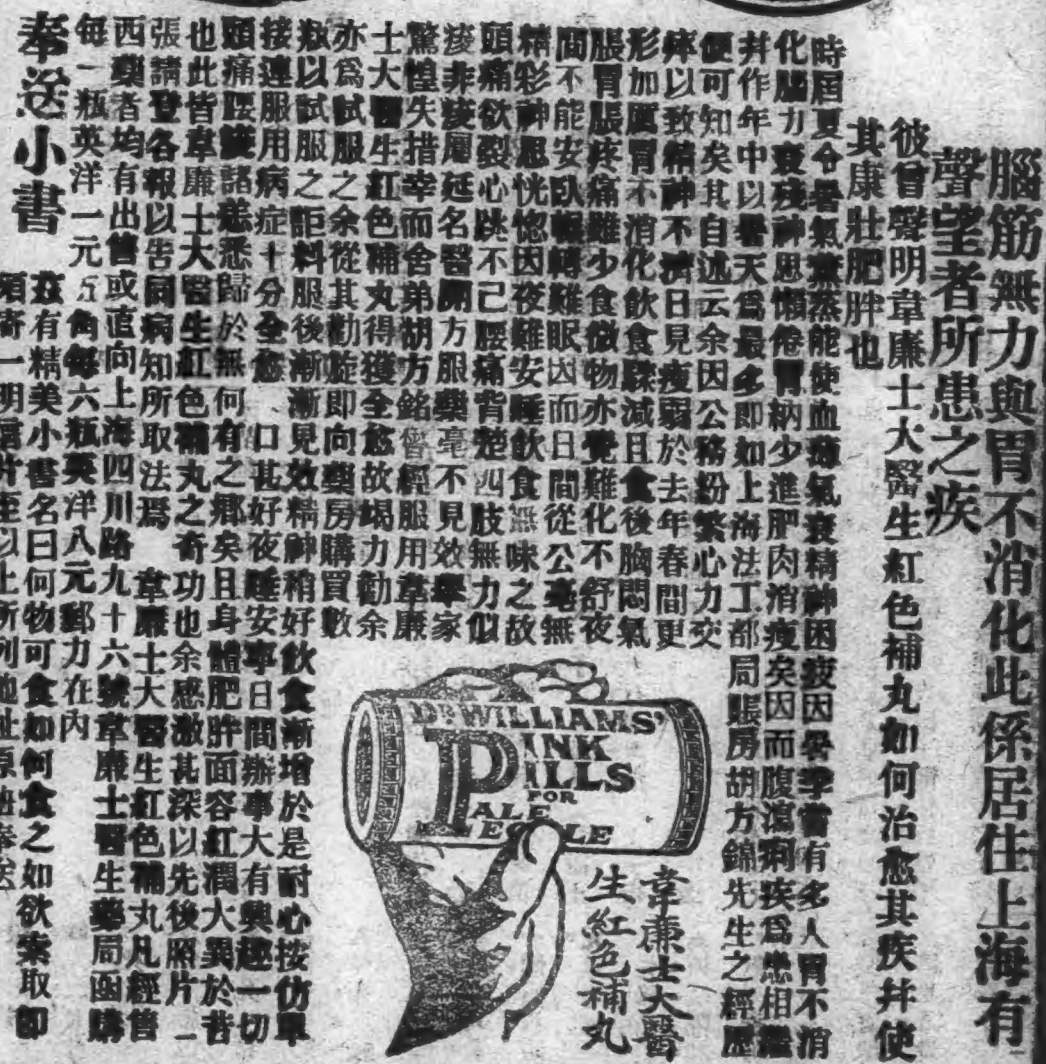 腦筋無力與胃不消化此係居住上海有
聲望者所患之疾
彼曾聲明韋廉士大醫生紅色補丸如何治愈其疾幷使
其康壯肥胖也
時屆夏令暑氣薰蒸能使血薄氣衰精神困疲因暑季嘗有多人胃不消
化腦力衰殘神思懶倦胃納少進肥肉消瘦矣因而腹瀉痢疾爲患相繼
幷作年中以暑天爲最多即如上海法工部局賬房胡方錦先生之經歷
便可知矣其自述云余因公務紛繁心力交
瘁以致精神不濟日見瘦弱於去年春間更
形加厲胃不消化飲食驟減且食後胸悶氣
脹胃脹疼痛難少食微物亦覺難化不舒夜
間不能安臥輾轉難眠因而日間從公毫無
精彩神思恍惚因夜難安睡飲食無味之故
頭痛欲裂心跳不已腰痛背楚四肢無力似
痠非痠屢延名醫開方服藥毫不見效舉家
驚惶失措幸而舍弟胡方銘曾經服用韋廉
士大醫生紅色補丸得獲全愈故竭力勸余
亦爲試服之余從其勸旋即向藥房購買數
瓶以試服之詎料服後漸漸見效精神稍好飲食漸增於是耐心按仿單
接連服用病症十分全愈 口甚好夜睡安寧日間辦事大有興趣一切
頭痛腰 諸恙悉歸於無何有之鄉矣且身體肥胖面容紅潤大異於昔
也此皆韋廉士大醫生紅色補丸之奇功也余感激甚深以先後照片一
張請登各報以告同病知所取法焉 韋廉士大醫生紅色補丸凡經售
西藥者均有出售或直向上海四川路九十六號韋廉士醫生藥局函購
每一瓶英洋一元五角每六瓶英洋八元郵力在內
奉送小書
茲有精美小書名曰何物可食如何食之如欲索取卽
須寄一明信片至以上所列地址原班奉送
DR WILLIAMS'
PINK
PILLS
FOR
PALE
PEOPLE
韋廉士大醫
生紅色補丸